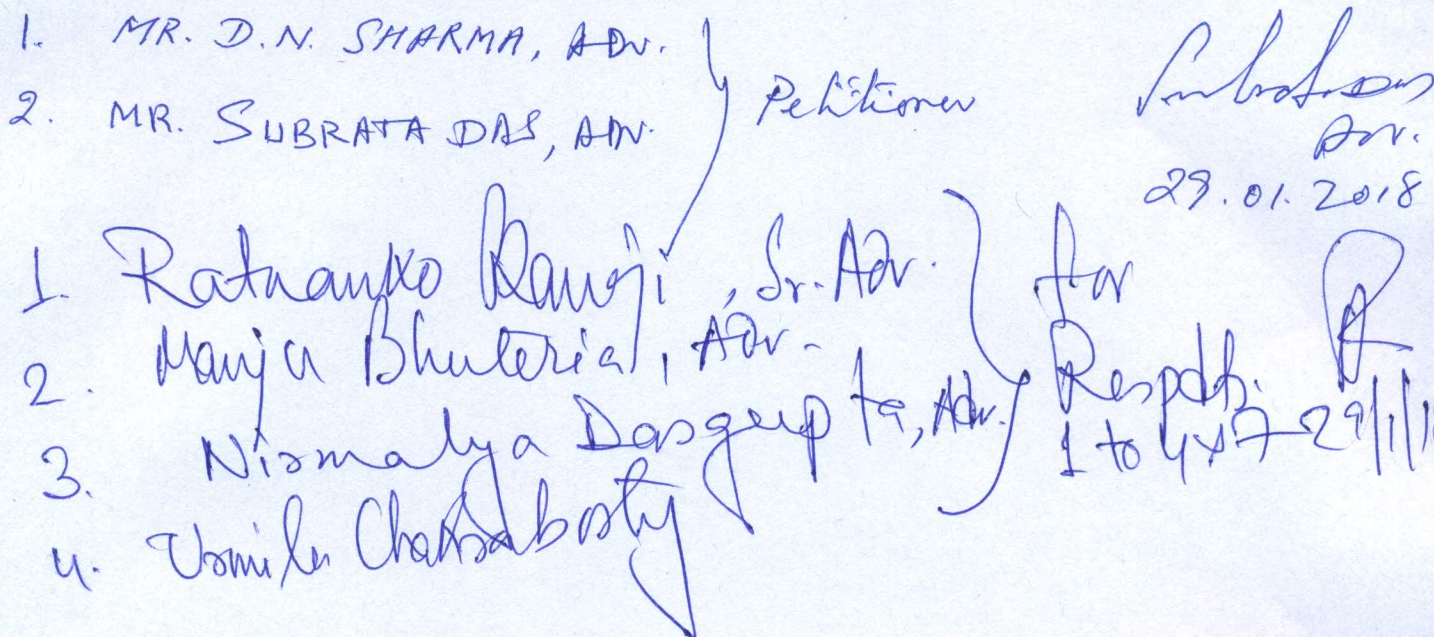 1. MR. D.N. SHARMA, ADV.
2. MR. SUBRATA DAS, ADV.
Petitioner
Subrata Das
Adv.
29.01.2018
1. Ratnanko Banerji, Sr. Adv.
2. Manju Bhuteria, Adv.
3. Nirmalya Dasgupta, Adv.
4. Urmila Chakraborty
for
Respdts.
1 to 4 & 7
29/1/18